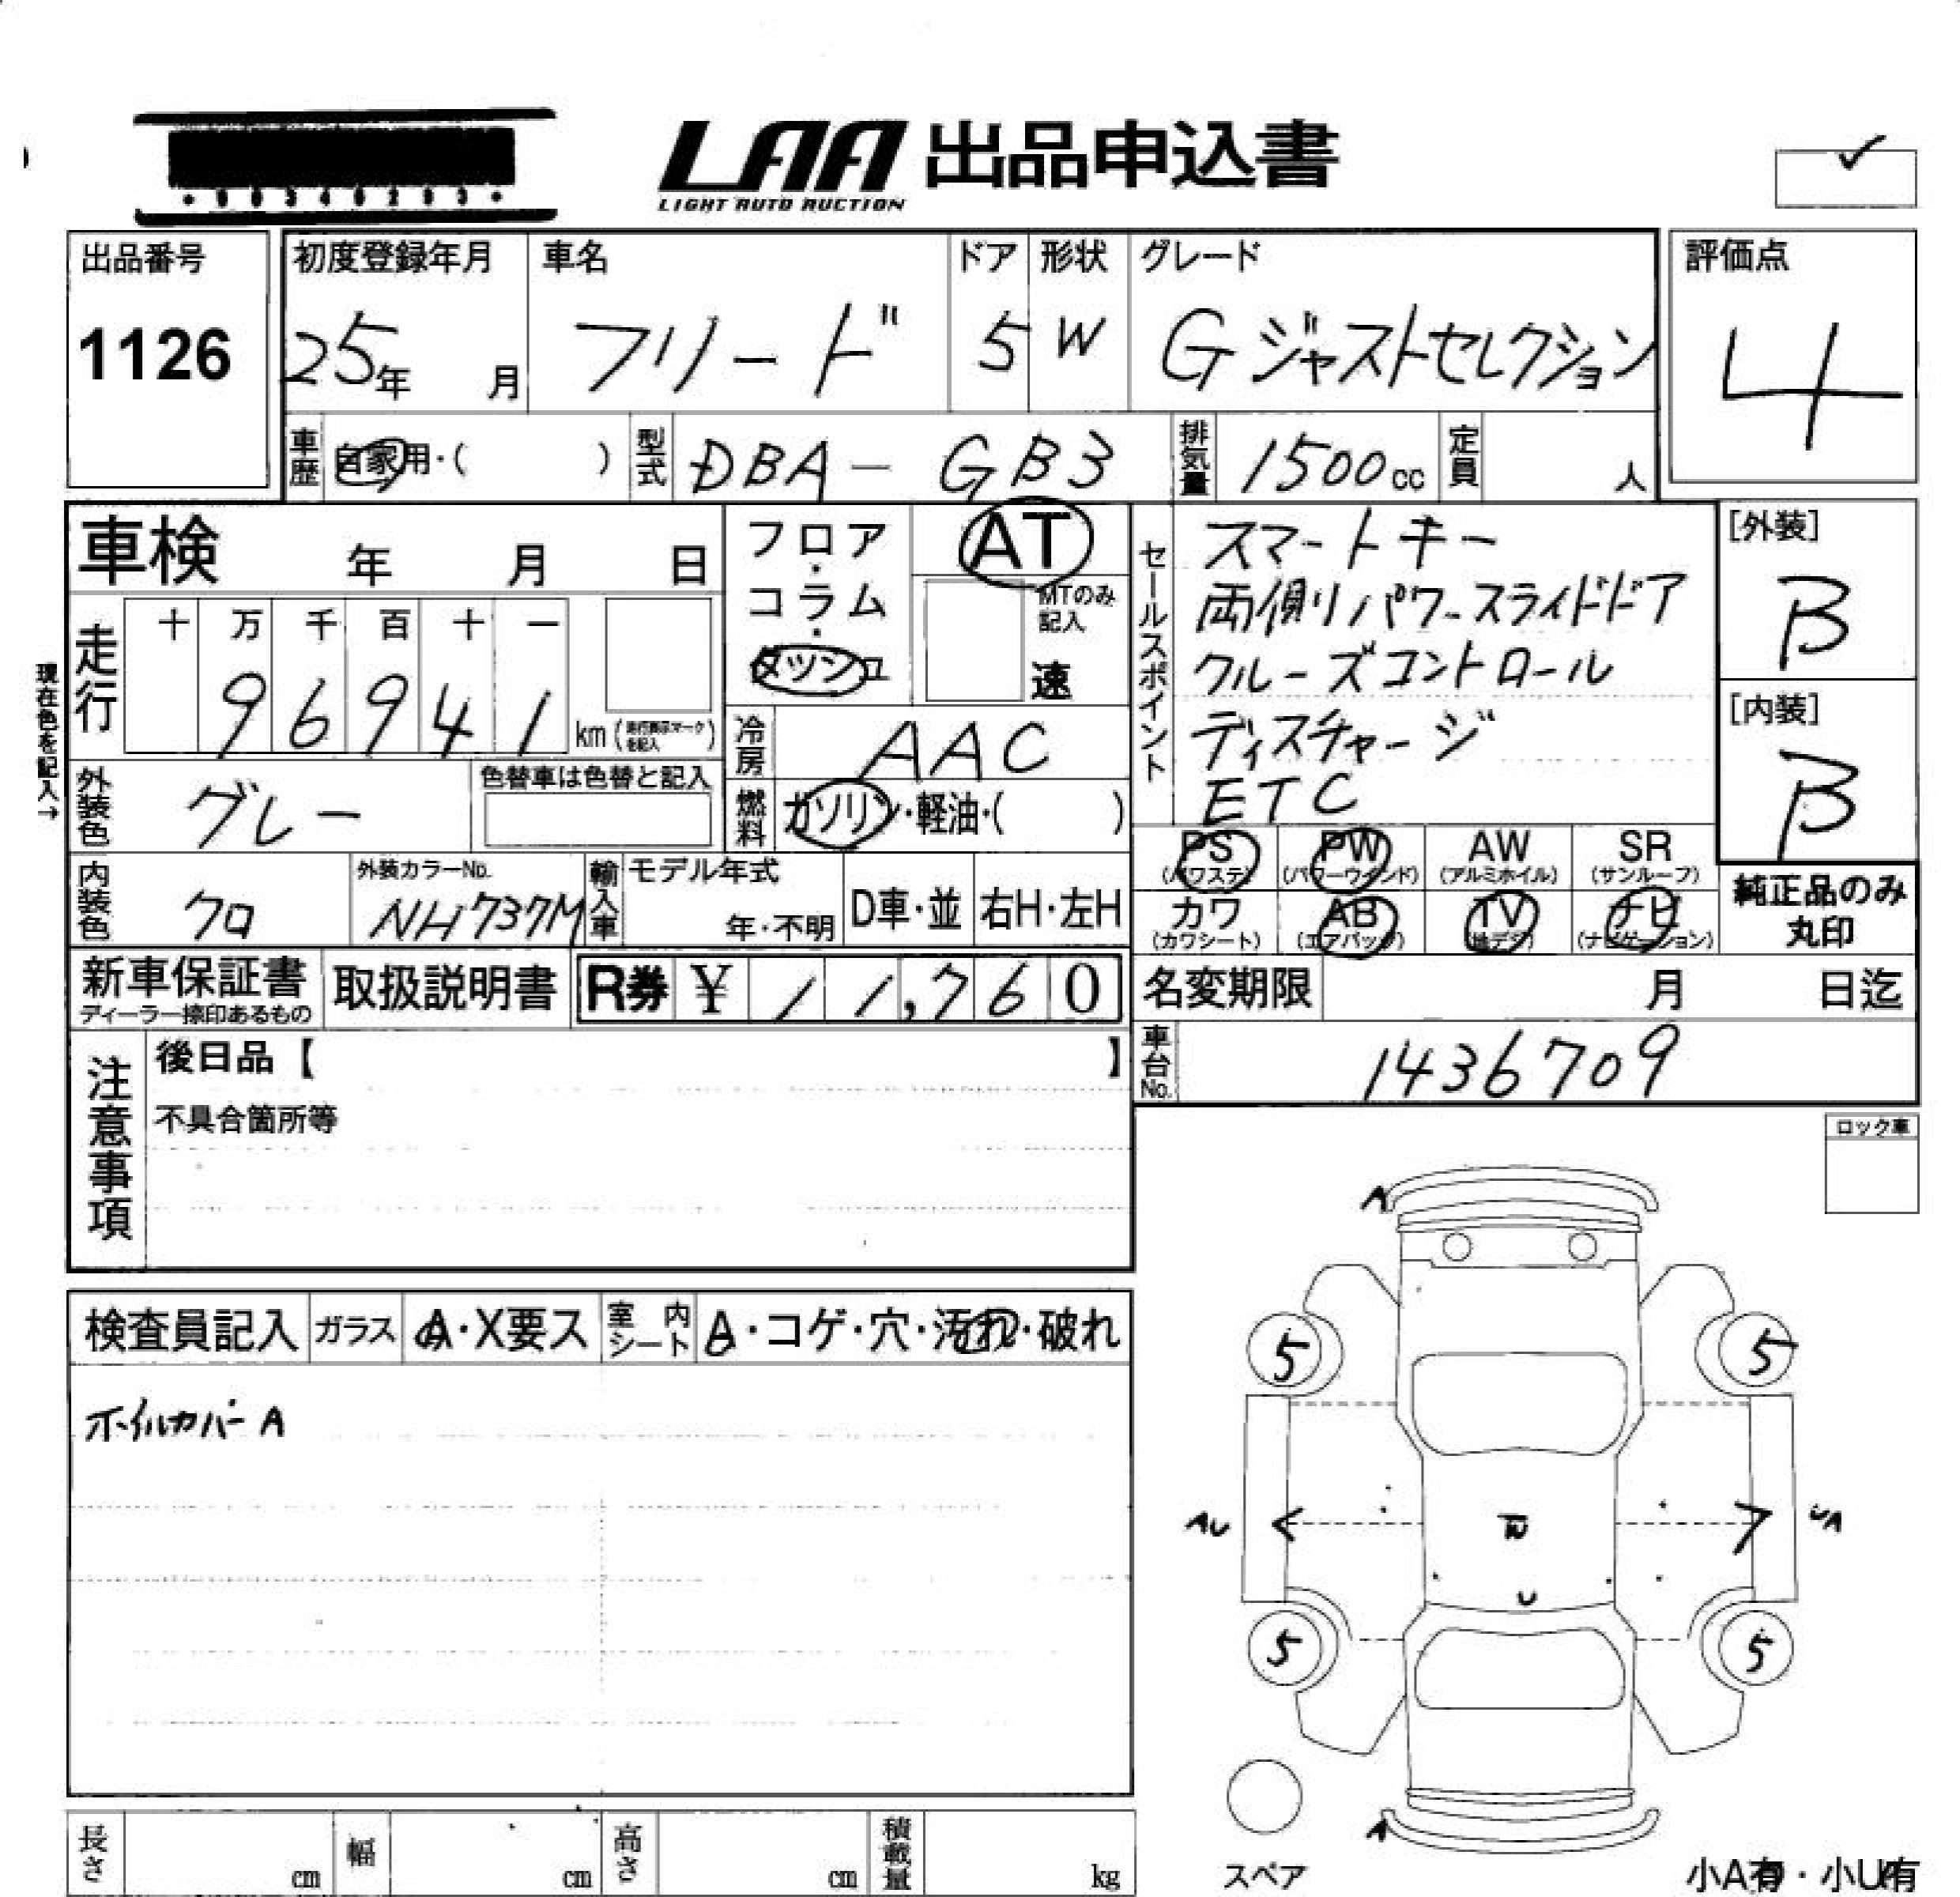 LAA 出品申込書
LIGHT AUTO AUCTION
出品番号
1126
初度登録年月
25年 月
車名
フリード
ドア
5
形状
W
グレード
Gジャストセレクション
評価点
4
車歴 自家用・( )
型式 DBA-GB3
排気量 1500cc
定員 人
車検 年 月 日
フロア・コラム・ダッシュ
AT
MTのみ記入
速
現在色を記入→
走行
十 万 千 百 十 一
9 6 9 4 1 km
冷房 AAC
外装色 グレー
色替車は色替と記入
燃料 ガソリン・軽油・( )
内装色 クロ
外装カラーNo.
NH737M
輸入車
モデル年式
年・不明
D車・並
右H・左H
セールスポイント
スマートキー
両側リパワースライドドア
クルーズコントロール
ディスチャージ
ETC
[外装]
B
[内装]
B
PS (パワステ)
PW (パワーウインド)
AW (アルミホイル)
SR (サンルーフ)
カワ (カワシート)
AB (エアバッグ)
TV (地デジ)
ナビ (ナビゲーション)
純正品のみ
丸印
新車保証書
ディーラー捺印あるもの
取扱説明書
R券 ¥ 11,760
名変期限 月 日迄
車台No. 1436709
注意事項
後日品【 】
不具合箇所等
ロック車
検査員記入
ガラス
A・X要ス
室内シート
A・コゲ・穴・汚れ・破れ
ホイルカバーA
A
5
5
AU
UA
U
5
5
A
スペア
小A有・小U有
長さ cm
幅 cm
高さ cm
積載量 kg